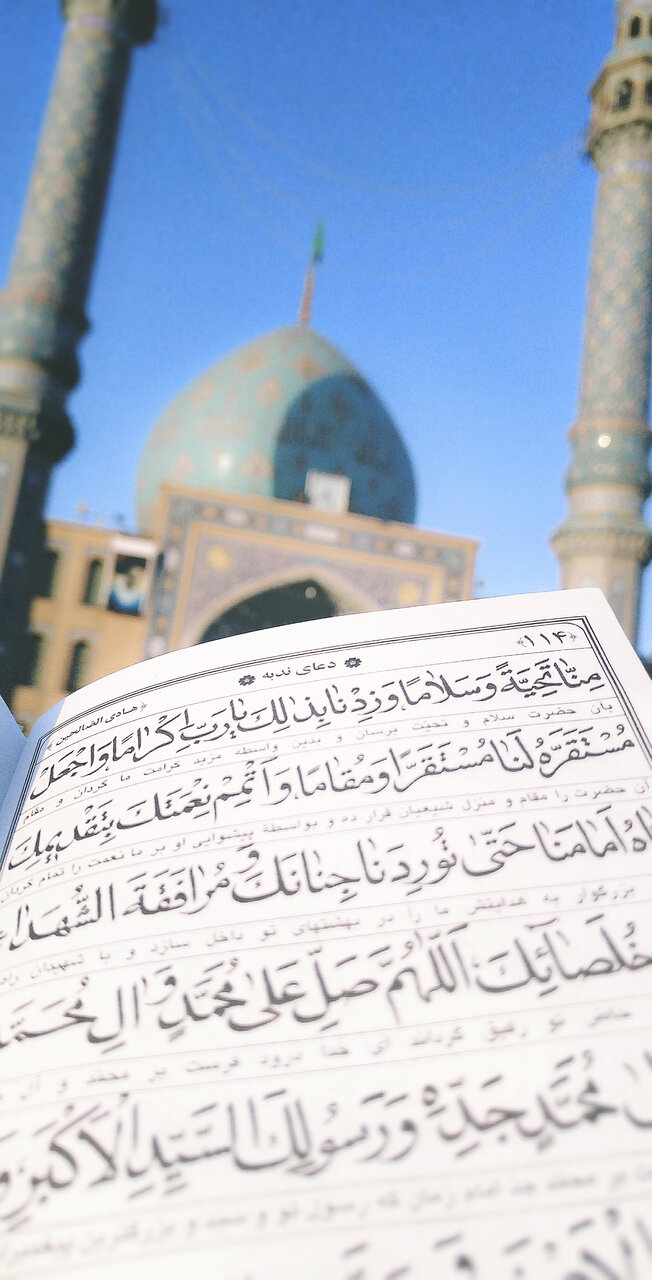 ﴿۱۱۴﴾
دعای ندبه
﴿هادی الصالحین﴾
مِنّا تَحِیَّةً وَسَلامًا وَزِدْنا بِذٰلِكَ یارَبِّ اِکْرامًا وَاجْعَلْ
بآن حضرت سلام و تحیّت برسان و بدین واسطه مزید کرامت ما گردان و مقام
مُسْتَقَرَّهُ لَنا مُسْتَقَرًّا وَمُقامًا وَاَتْمِمْ نِعْمَتَكَ بِتَقْدیمِكَ
آن حضرت را مقام و منزل شیعیان قرار ده و بواسطهٔ پیشوایی او بر ما نعمتت را تمام گردان
اَمامَنا حَتّیٰ تُورِدَنا جِنانَكَ وَ مُرافَقَةَ الشُّهَداءِ
بزرگوار به هدایتش ما را در بهشتهای تو داخل سازد و با شهیدان راه
خُلَصائِكَ، اَللّٰهُمَّ صَلِّ عَلیٰ مُحَمَّدٍ وَ الِ مُحَمَّدٍ
تو رفیق گرداند ای خدا درود فرست بر محمد و آل
مُحَمَّدٍ جَدِّهِ وَ رَسُولِكَ السَّیِّدِ الْاَکْبَرِ وَ
بر محمد جد امام زمان که رسول تو و سید و بزرگترین پیغمبران